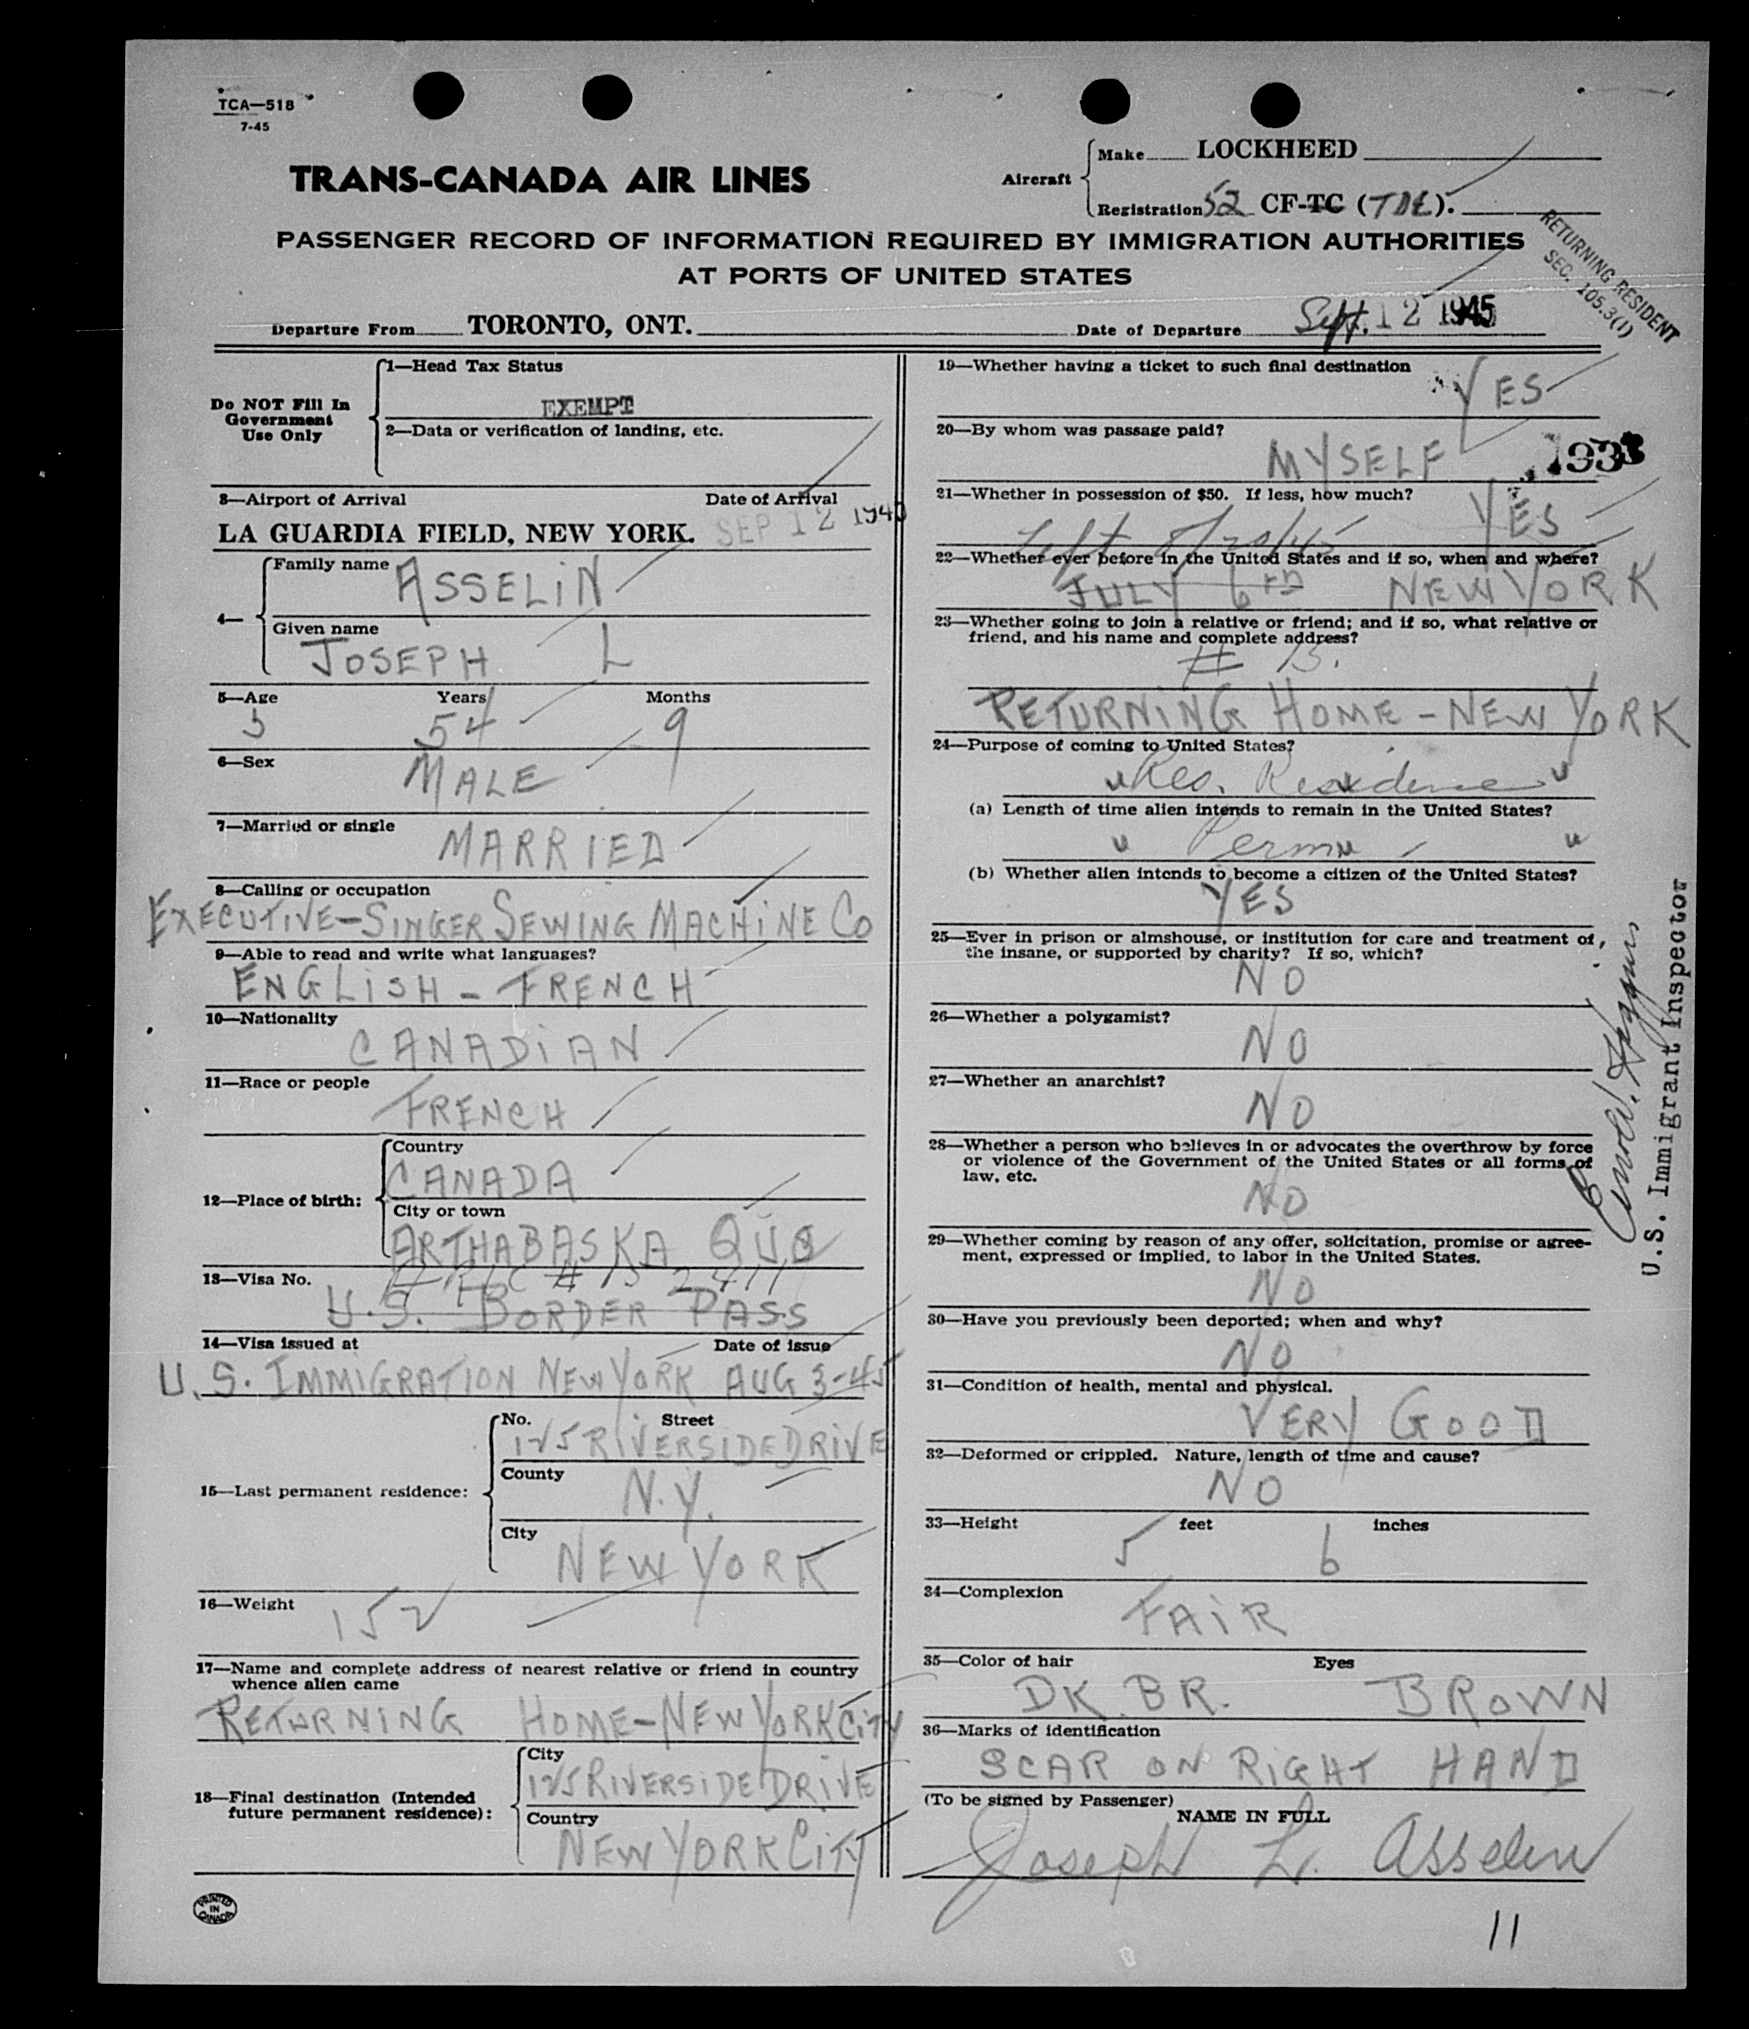 TCA—518
7-45
TRANS-CANADA AIR LINES
Aircraft
Make LOCKHEED
Registration 52 CF-TC (TDE).
PASSENGER RECORD OF INFORMATION REQUIRED BY IMMIGRATION AUTHORITIES
AT PORTS OF UNITED STATES
RETURNING RESIDENT
SEC. 105.3(1)
Departure From TORONTO, ONT.
Date of Departure Sept. 12 1945
Do NOT Fill In
Government
Use Only
1—Head Tax Status
EXEMPT
2—Data or verification of landing, etc.
3—Airport of Arrival Date of Arrival
LA GUARDIA FIELD, NEW YORK. SEP 12 1945
4—
Family name ASSELIN
Given name
JOSEPH L
5—Age Years Months
54 9
6—Sex
MALE
7—Married or single
MARRIED
8—Calling or occupation
EXECUTIVE-SINGER SEWING MACHINE CO
9—Able to read and write what languages?
ENGLISH - FRENCH
10—Nationality
CANADIAN
11—Race or people
FRENCH
12—Place of birth:
Country
CANADA
City or town
ARTHABASKA QUE
13—Visa No.
U.S. BORDER PASS
14—Visa issued at Date of issue
U.S. IMMIGRATION NEW YORK AUG 3-45
15—Last permanent residence:
No. Street
125 RIVERSIDE DRIVE
County
N.Y.
City
NEW YORK
16—Weight
152
17—Name and complete address of nearest relative or friend in country
whence alien came
RETURNING HOME-NEW YORK CITY
18—Final destination (Intended
future permanent residence):
City
125 RIVERSIDE DRIVE
Country
NEW YORK CITY
PRINTED
IN
CANADA
19—Whether having a ticket to such final destination
YES
20—By whom was passage paid?
MYSELF
193
21—Whether in possession of $50. If less, how much?
YES
Left
22—Whether ever before in the United States and if so, when and where?
JULY 6TH NEW YORK
23—Whether going to join a relative or friend; and if so, what relative or
friend, and his name and complete address?
RETURNING HOME - NEW YORK
24—Purpose of coming to United States?
Res. Residence
(a) Length of time alien intends to remain in the United States?
Perm
(b) Whether alien intends to become a citizen of the United States?
YES
25—Ever in prison or almshouse, or institution for care and treatment of,
the insane, or supported by charity? If so, which?
NO
26—Whether a polygamist?
NO
27—Whether an anarchist?
NO
28—Whether a person who believes in or advocates the overthrow by force
or violence of the Government of the United States or all forms of
law, etc.
NO
29—Whether coming by reason of any offer, solicitation, promise or agree-
ment, expressed or implied, to labor in the United States.
NO
30—Have you previously been deported; when and why?
NO
31—Condition of health, mental and physical.
VERY GOOD
32—Deformed or crippled. Nature, length of time and cause?
NO
33—Height feet inches
5 6
34—Complexion
FAIR
35—Color of hair Eyes
DK. BR. BROWN
36—Marks of identification
SCAR ON RIGHT HAND
(To be signed by Passenger)
NAME IN FULL
Joseph L. Asselin
U.S. Immigrant Inspector
11